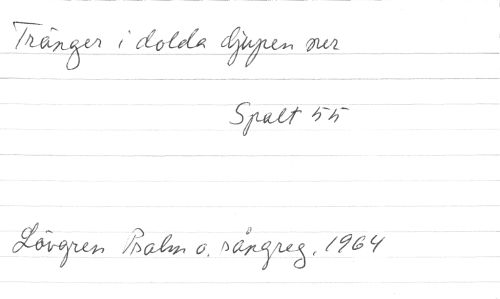 Tränger i dolda djupen ner
Spalt 55
Lövgren Psalm o. sångreg. 1964